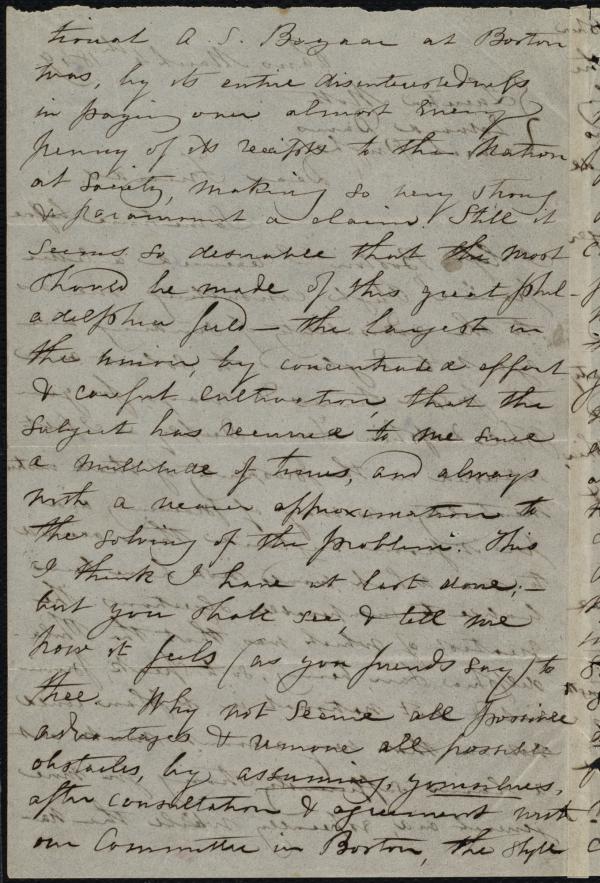 tional A. S. Bazaar at Boston
was, by its entire disinterestedness
in paying over almost every
penny of its receipts to the Nation
al Society, making so very strong
& paramount a claim. Still it
seems so desirable that the most
should be made of this great Phil-
adelphia field — the largest in
the union, by concentrated effort
& careful cultivation, that the
subject has recurred to me since
a multitude of times, and always
with a nearer approximation to
the solving of the problem. This
I think I have at last done; —
but you shall see, & tell me
how it feels (as you friends say) to
thee. Why not secure all possible
advantages & remove all possible
obstacles, by assuming, yourselves,
after consultation & agreement with
our Committee in Boston, the style